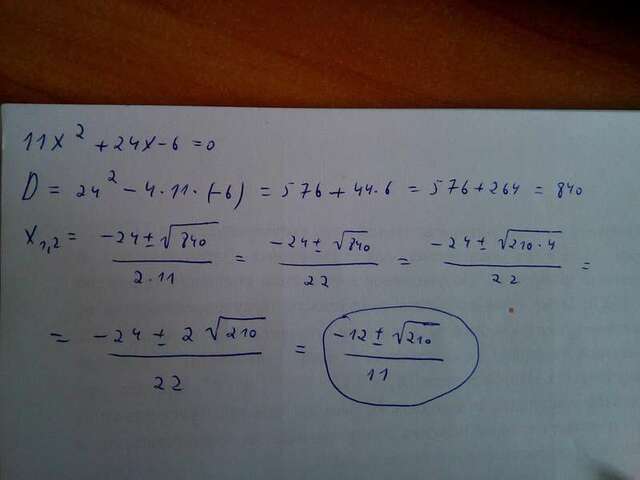 11x² + 24x - 6 = 0
D = 24² - 4·11·(-6) = 576 + 44·6 = 576 + 264 = 840
x₁,₂ = (-24 ± √840)/(2·11) = (-24 ± √840)/22 = (-24 ± √(210·4))/22 =
= (-24 ± 2√210)/22 = (-12 ± √210)/11